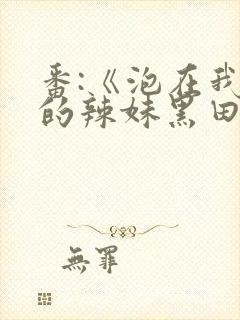 番:《泡在我
的辣妹黑田
無罪